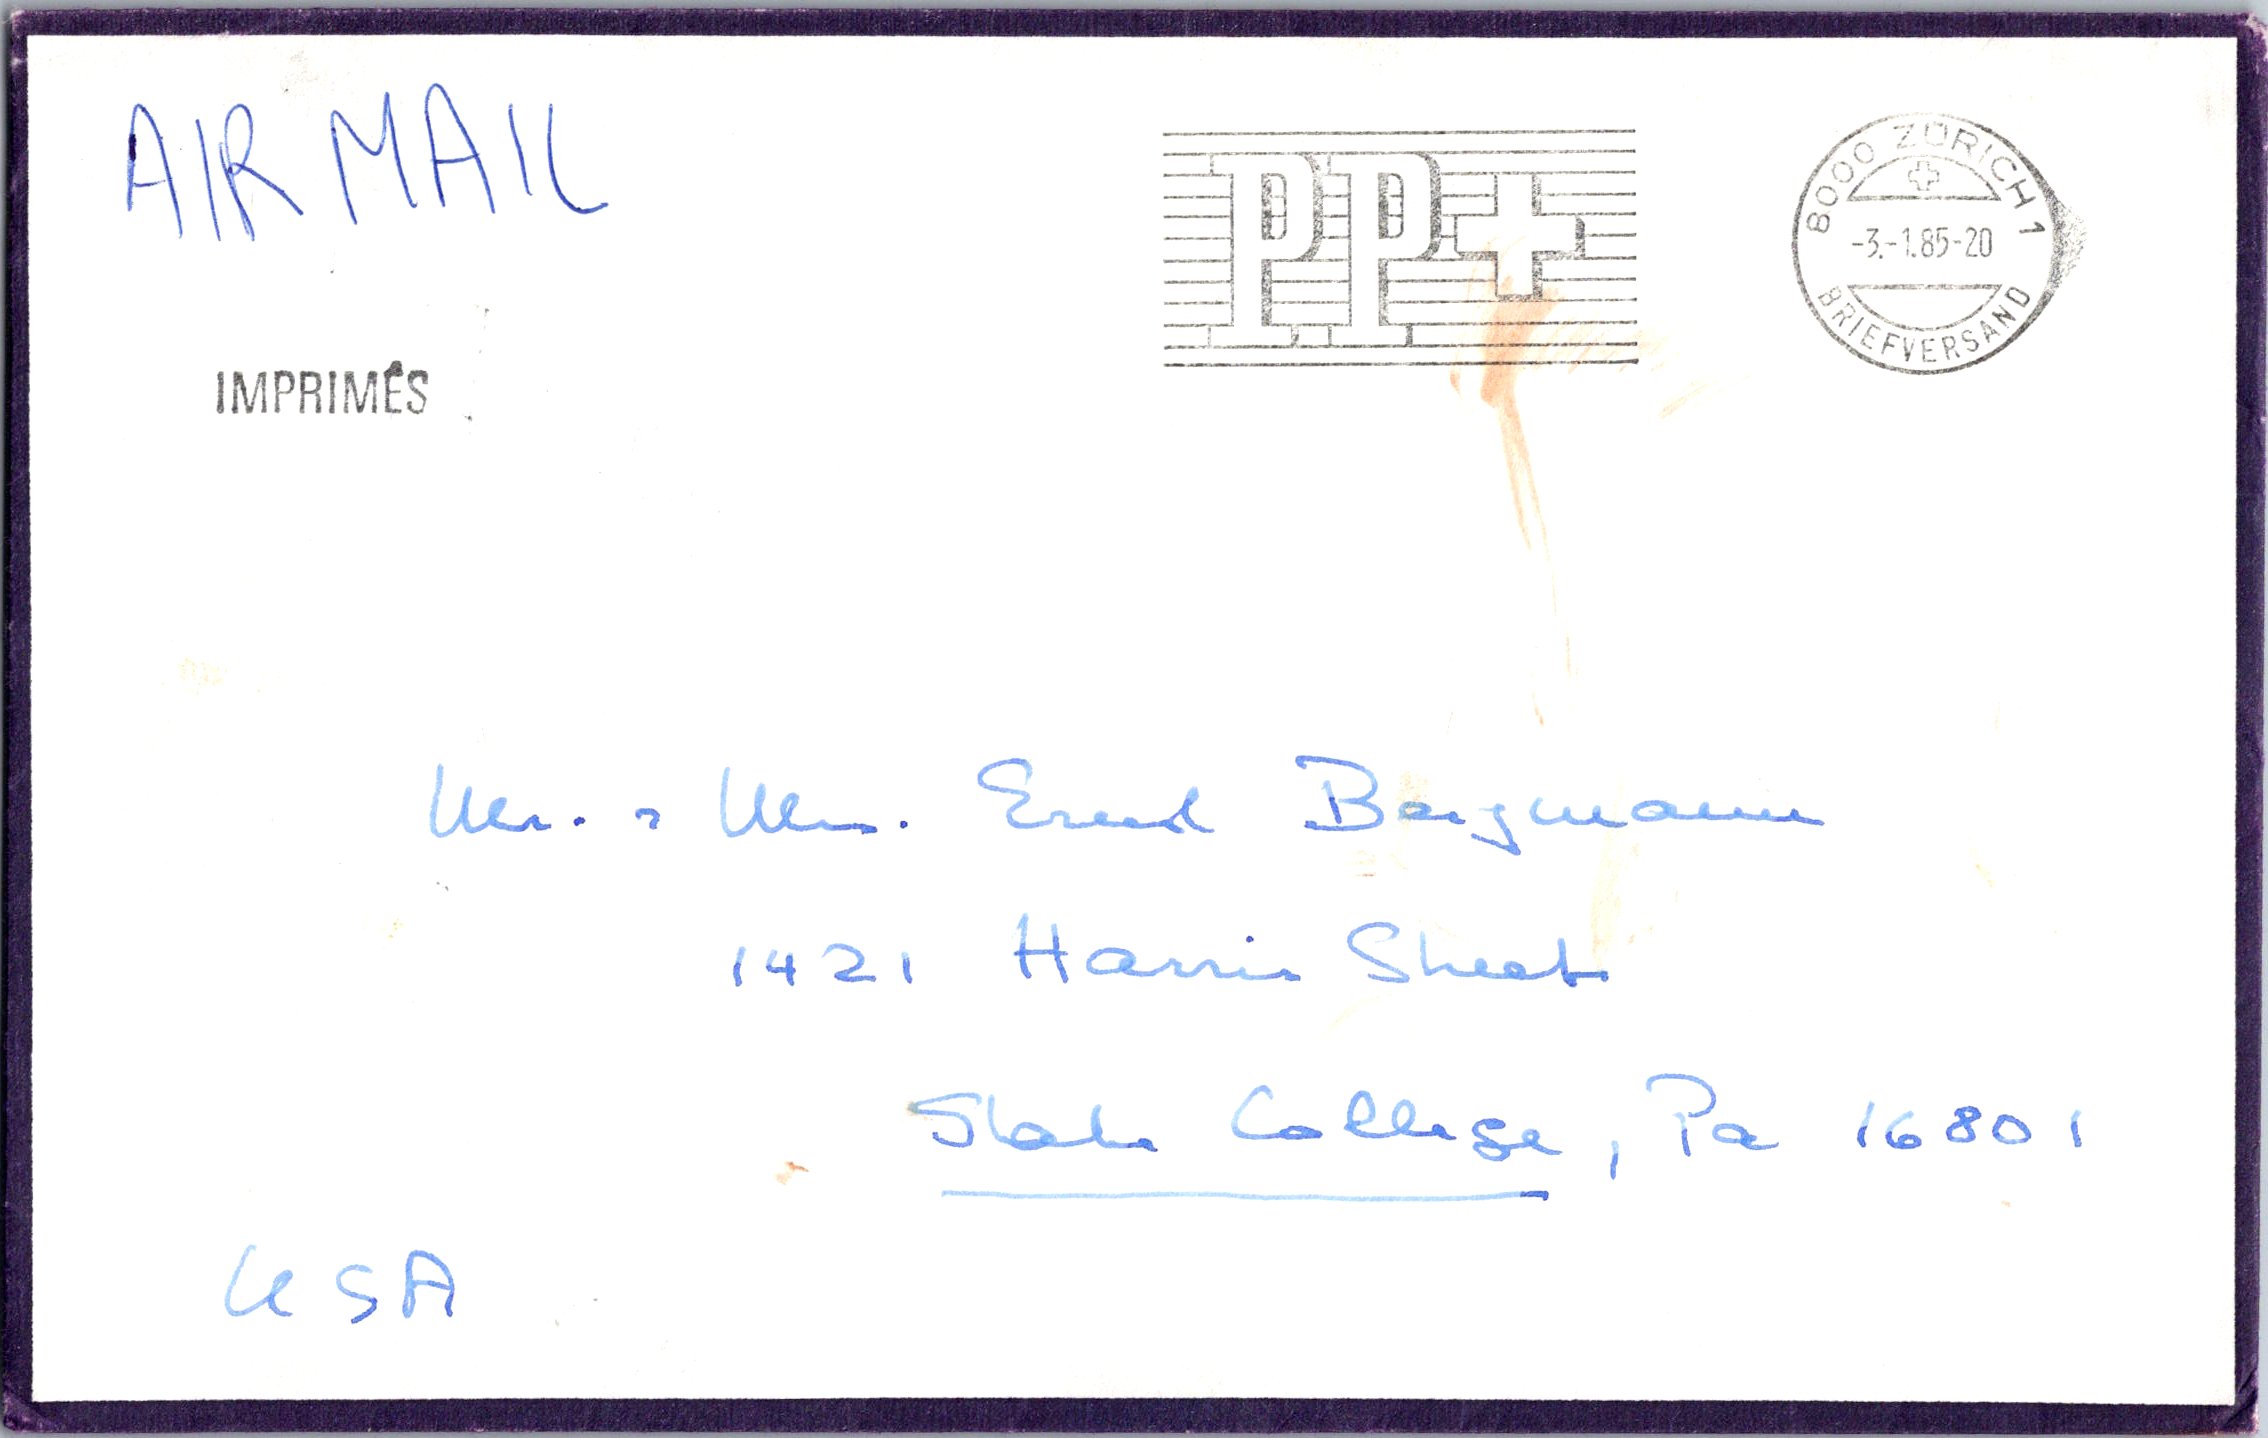 AIR MAIL
PP
8000 ZÜRICH 1
-3.-1.85-20
BRIEFVERSAND
IMPRIMÉS
Mr. + Mrs. Ernst Bergmann
1421 Harris Street
State College, Pa 16801
USA